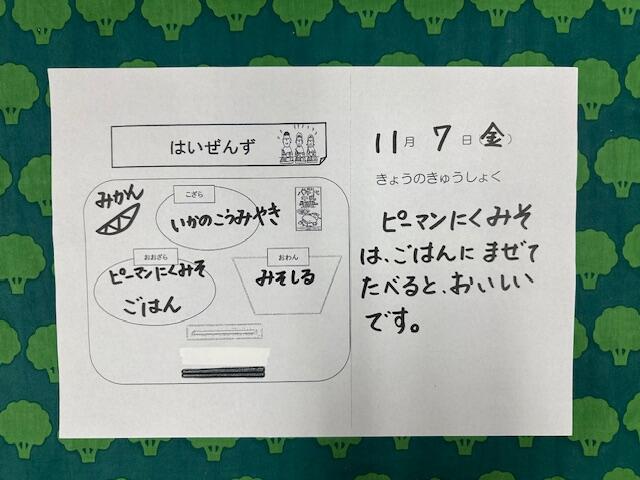 はいぜんず
みかん
こざら
いかのこうみやき
おおざら
ピーマンにくみそ
ごはん
おわん
みそしる
11月 7日(金)
きょうのきゅうしょく
ピーマンにくみそ
は、ごはんに まぜて
たべると、おいしい
です。